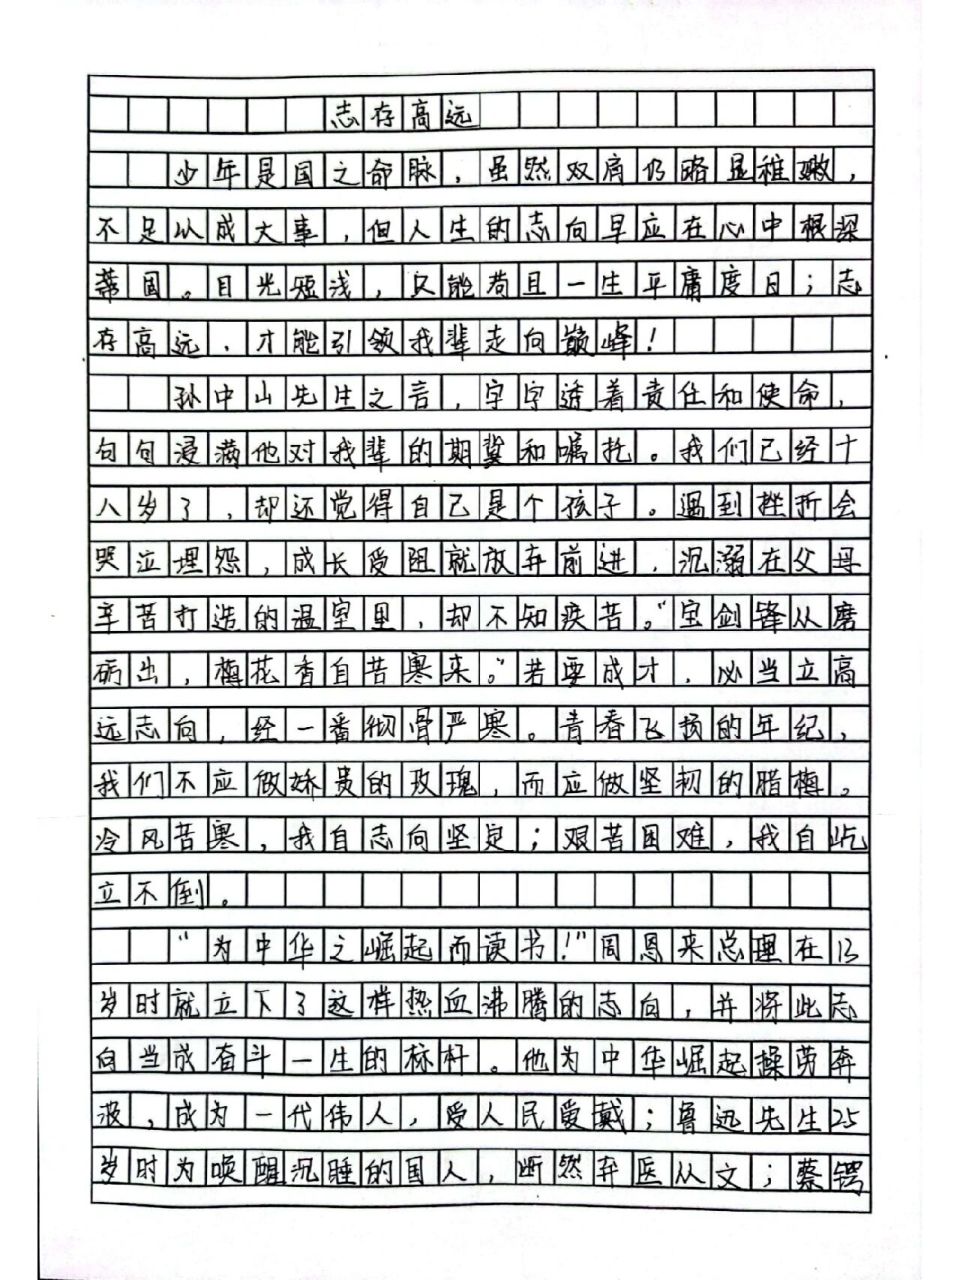 志存高远
少年是国之命脉，虽然双肩仍略显稚嫩，
不足以成大事，但人生的志向早应在心中根深
蒂固。目光短浅，只能苟且一生平庸度日；志
存高远，才能引领我辈走向巅峰！
孙中山先生之言，字字透着责任和使命，
句句浸满他对我辈的期冀和嘱托。我们已经十
八岁了，却还觉得自己是个孩子。遇到挫折会
哭泣埋怨，成长受阻就放弃前进，沉溺在父母
辛苦打造的温室里，却不知疾苦。“宝剑锋从磨
砺出，梅花香自苦寒来。”若要成才，必当立高
远志向，经一番彻骨严寒。青春飞扬的年纪，
我们不应做娇贵的玫瑰，而应做坚韧的腊梅。
冷风苦寒，我自志向坚定；艰苦困难，我自屹
立不倒。
“为中华之崛起而读书！”周恩来总理在13
岁时就立下了这样热血沸腾的志向，并将此志
向当成奋斗一生的标杆。他为中华崛起操劳奔
波，成为一代伟人，受人民爱戴；鲁迅先生25
岁时为唤醒沉睡的国人，断然弃医从文；蔡锷